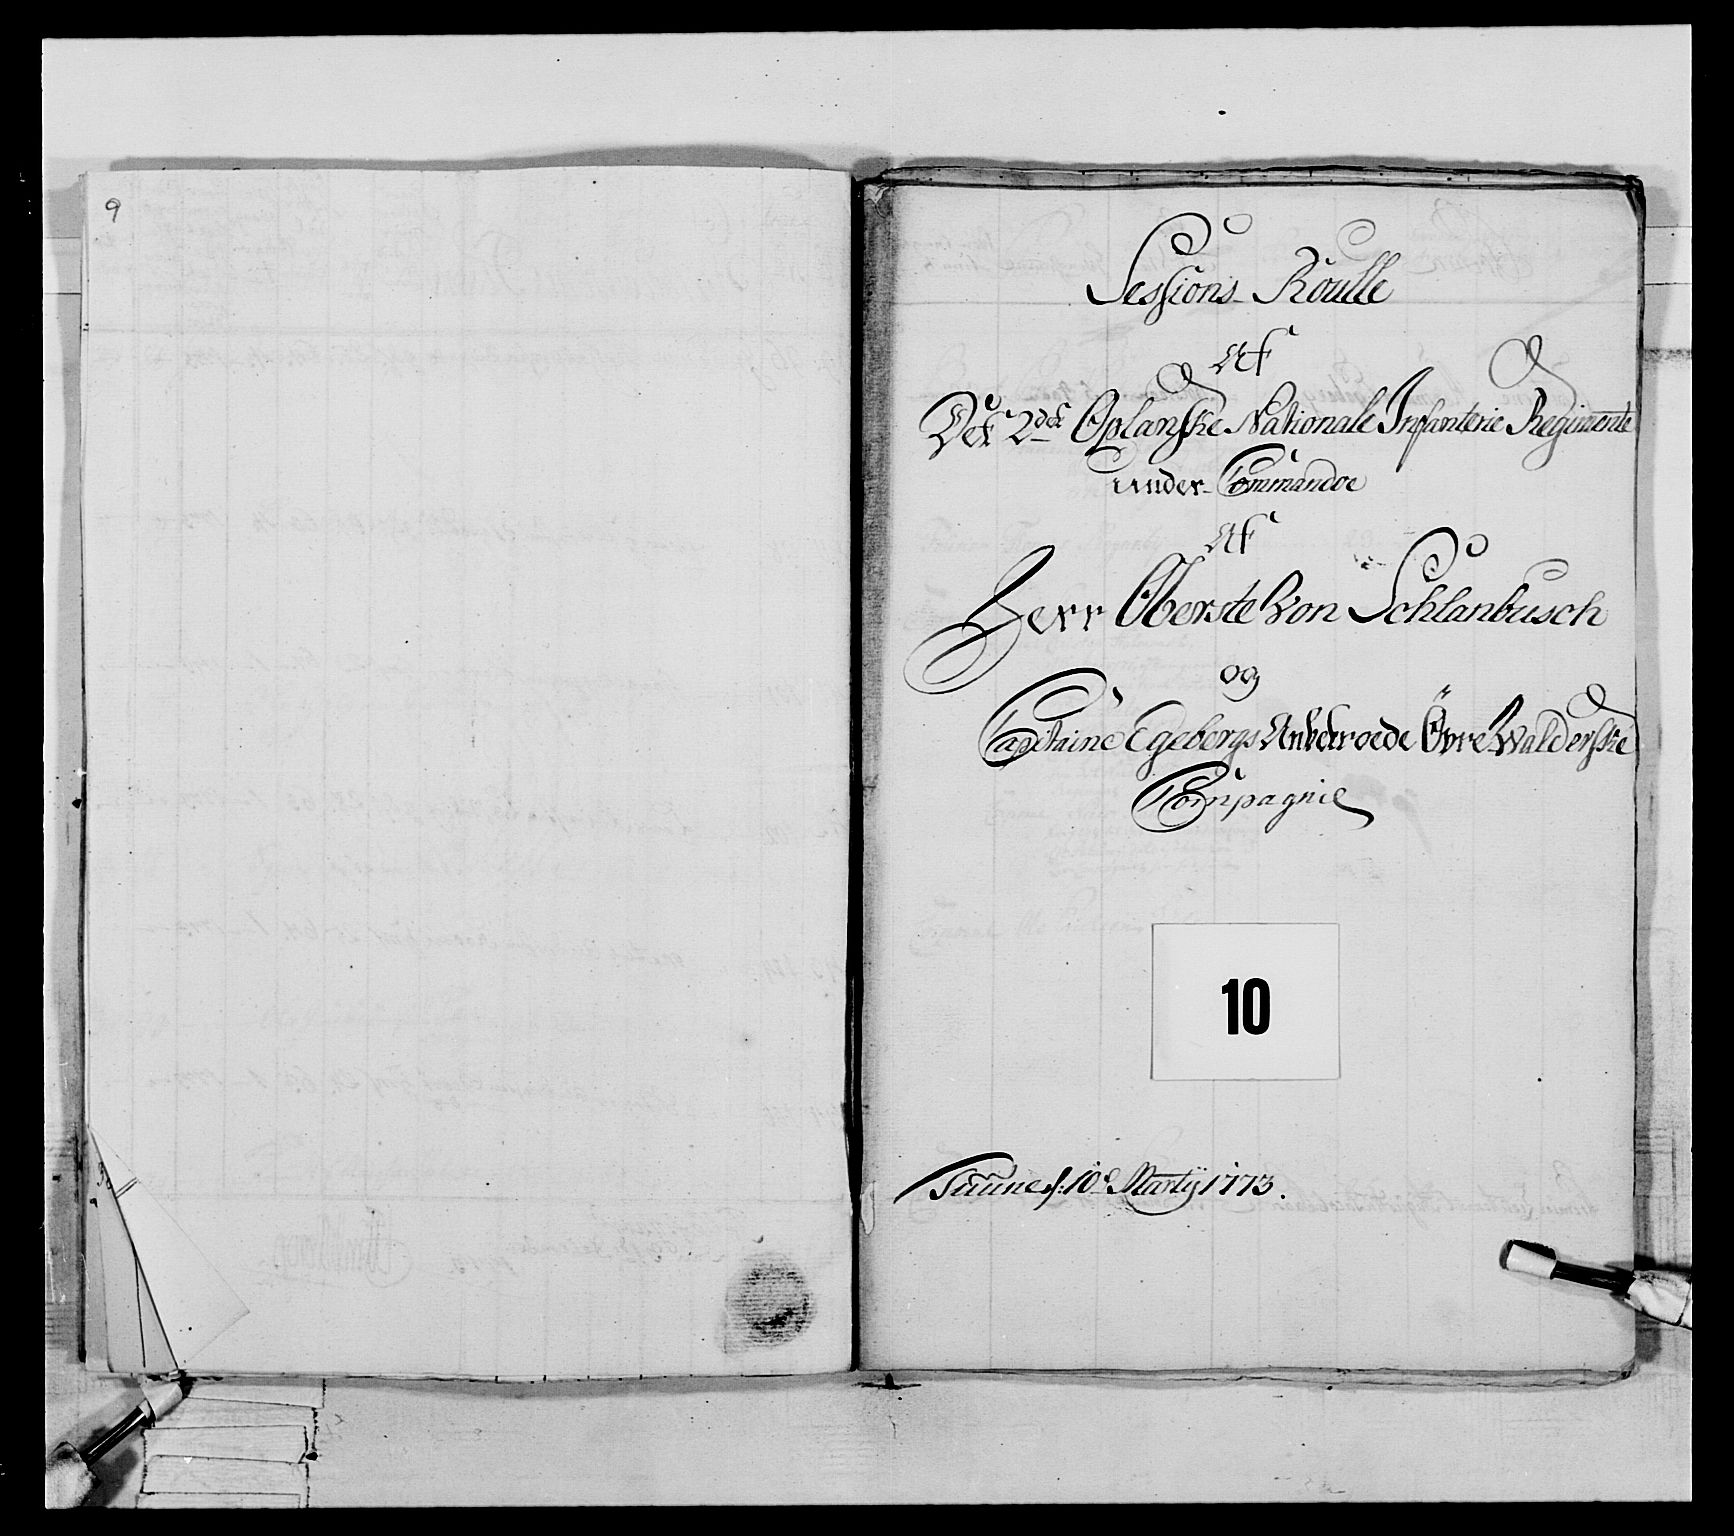 9
Sessions Roulle
Af
Det 2det Oplanske Nationale Infanterie Regimente
Under Commandoe
Af
Herr Oberste Von Schlanbusch
og
Capitaine Egebergs Anvertroede Övre Walderske
Compagnie
10
Tuune d: 10de Martÿ 1773.